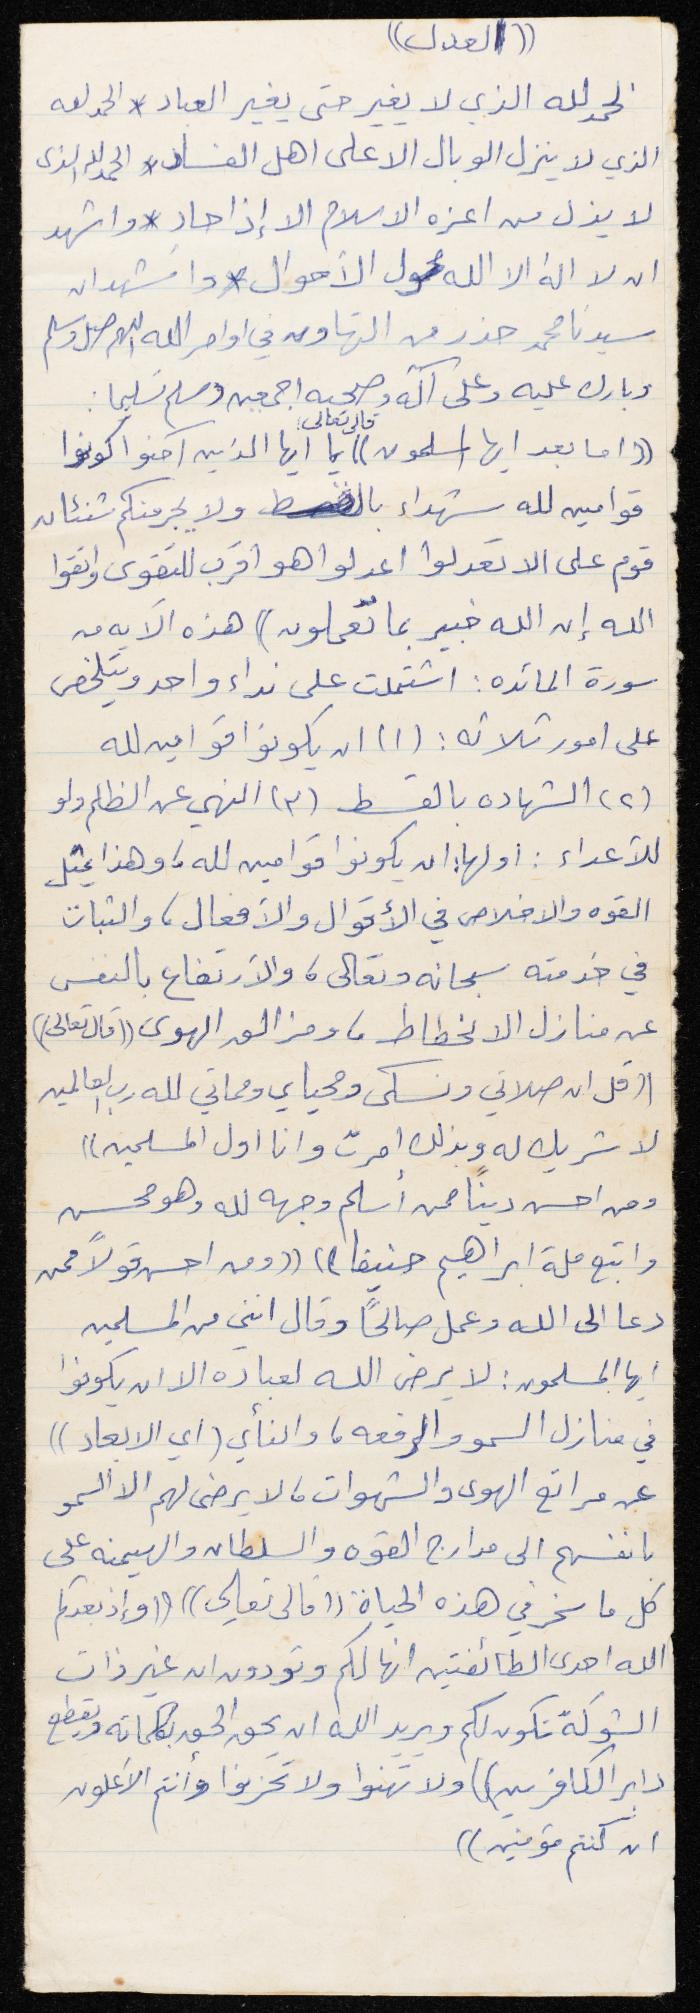 ((العدل))
الحمد لله الذي لا يغير حتى يغير العباد * الحمد لله
الذي لا ينزل الوبال الا على اهل الفساد * الحمد لله الذى
لا يذل من اعزه الاسلام الا إذا حاد * واشهد
ان لا اله الا الله محول الأحوال * وأشهد ان
سيدنا محمد حذر من التهاون في اوامر الله اللهم صل وسلم
وبارك عليه وعلى آله وصحبه اجمعين وسلم تسليما :
((اما بعد ايها المسلمون)) قال تعالى: يا ايها الذين آمنوا كونوا
قوامين لله شهداء بالقسط ولا يجرمنكم شنئان
قوم على الا تعدلوا اعدلوا هو اقرب للتقوى واتقوا
الله إن الله خبير بما تعملون)) هذه الآيه من
سورة المائده : اشتملت على نداء واحد ويتلخص
على امور ثلاثه : (١) ان يكونوا قوامين لله
(٢) الشهاده بالقسط (٣) النهي عن الظلم ولو
للأعداء : اولها: ان يكونوا قوامين لله، وهذا يمثل
القوه والاخلاص في الأقوال والأفعال، والثبات
في خدمته سبحانه وتعالى، والأرتفاع بالنفس
عن منازل الانحطاط، ومزالق الهوى ((قال تعالى))
((قل ان صلاتي ونسكى ومحياي ومماتي لله رب العالمين
لا شريك له وبذلك امرت وانا اول المسلمين))
ومن احسن دينًا ممن أسلم وجهه لله وهو محسن
واتبع ملة ابراهيم حنيفا)) ((ومن احسن قولاً ممن
دعا الى الله وعمل صالحًا وقال انني من المسلمين
ايها المسلمون : لا يرضى الله لعباده الا ان يكونوا
في منازل السمو والرفعه، والنأي (اي الابعاد))
عن مراتع الهوى والشهوات، لا يرضى لهم الا السمو
بانفسهم الى مدارج القوه والسلطان والهيمنه على
كل ما سخر في هذه الحياة ((قال تعالى)) ((وإذ يعدكم
الله احدى الطائفتين انها لكم وتودون ان غير ذات
الشوكة تكون لكم ويريد الله ان يحق الحق بكلماته ويقطع
دابر الكافرين)) ولا تهنوا ولا تحزنوا وأنتم الأعلون
ان كنتم مؤمنين))